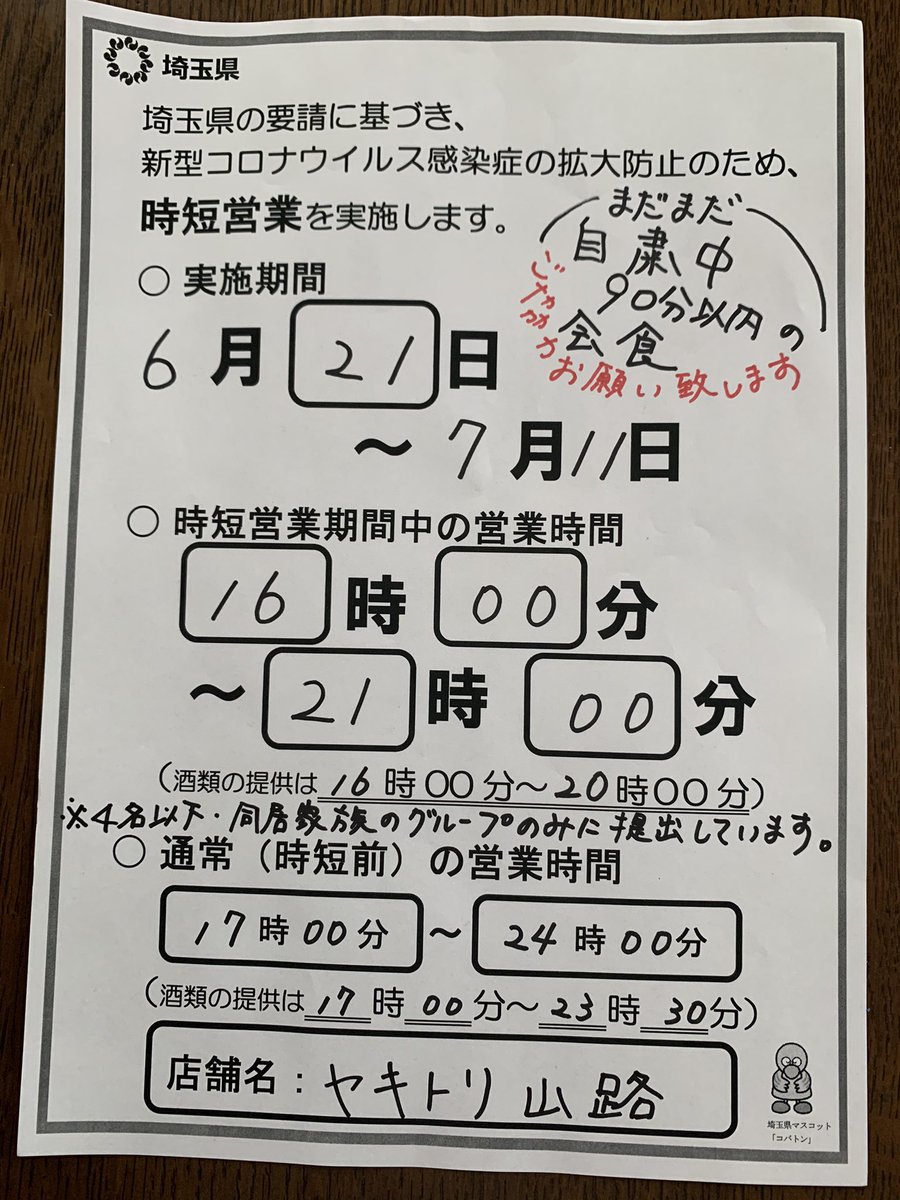 埼玉県
埼玉県の要請に基づき、
新型コロナウイルス感染症の拡大防止のため、
時短営業を実施します。
まだまだ
自粛中
90分以内の
会食
ご協力お願い致します
○ 実施期間
6月21日
～7月11日
○ 時短営業期間中の営業時間
16時00分
～21時00分
（酒類の提供は16時00分～20時00分）
※4名以下・同居家族のグループのみに提出しています。
○ 通常（時短前）の営業時間
17時00分～24時00分
（酒類の提供は17時00分～23時30分）
店舗名：ヤキトリ山路
埼玉県マスコット
「コバトン」